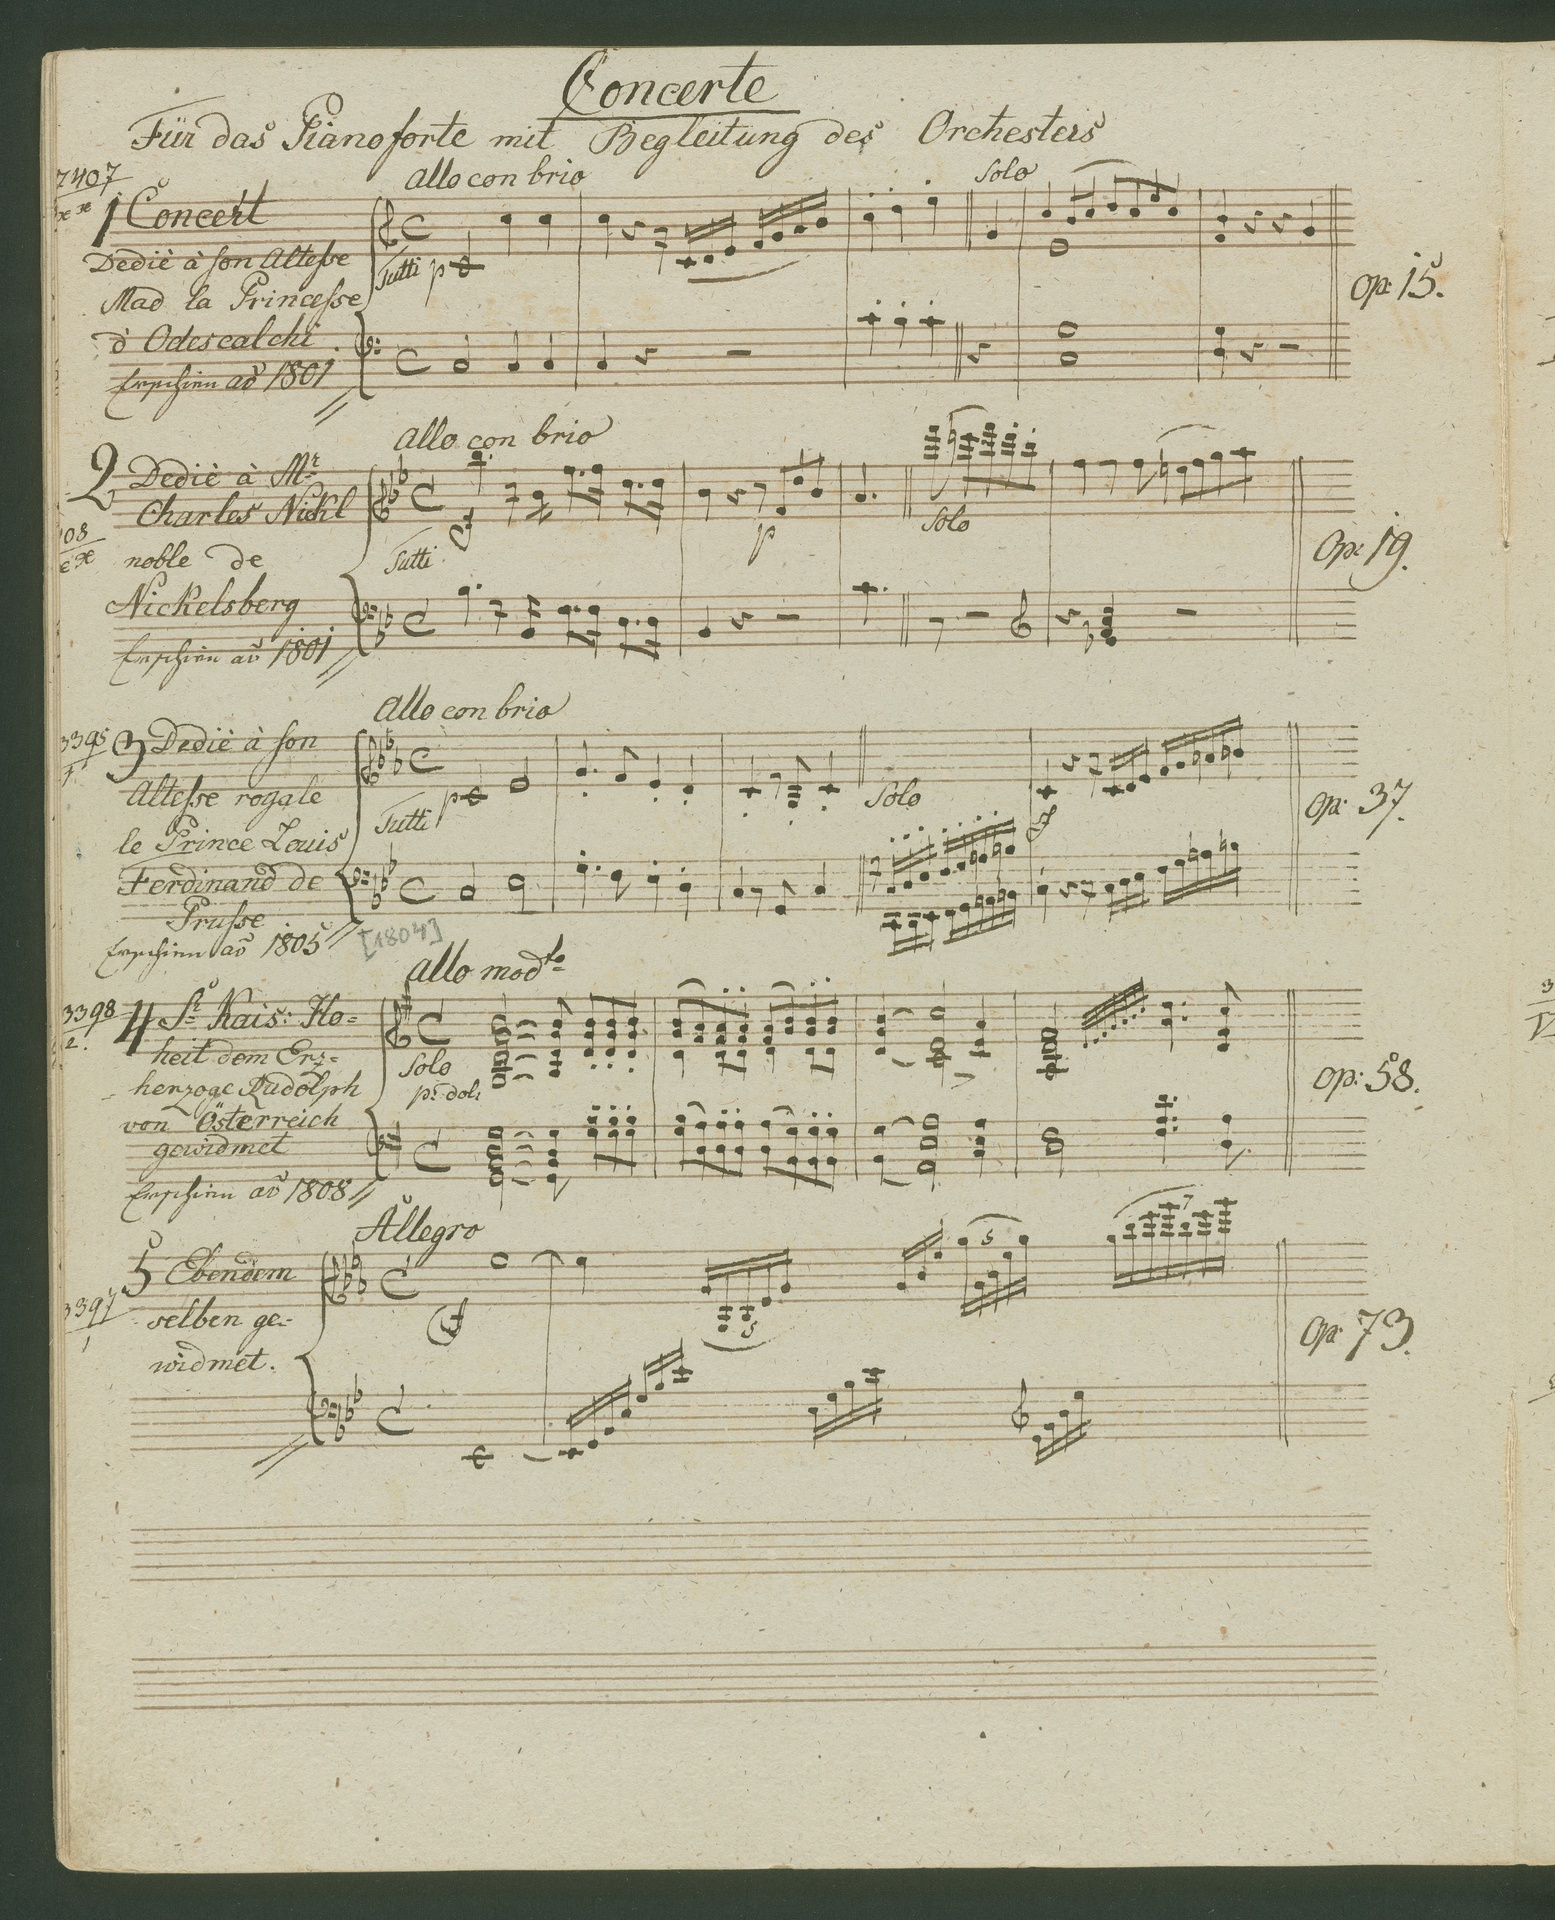 Concerte
Für das Pianoforte mit Begleitung des Orchesters
7407
1 Concert
Allo con brio
Solo
Dediè à son Altesse
Tutti p
Mad la Princesse
Op: 15.
d'Odescalchi.
Erschien aō 1801
Allo con brio
2 Dediè à Mr
Charles Nickl
08
noble de
Tutti
p
Solo
Op: 19.
Nickelsberg
Erschien aō 1801
Allo con brio
3395
3 Dediè à son
Altesse royale
Tutti
p
Solo
Op: 37.
le Prince Louis
Ferdinand de
Prusse
Erschien aō 1805
[1804]
Allo modto
3398
2.
4 Sr Kais: Ho=
heit dem Erz=
Solo
herzoge Rudolph
p: dol:
Op: 58.
von Österreich
gewidmet
Erschien aō 1808
Allegro
5 Ebendem
5
7
3397
1
selben ge=
5
Op: 73.
widmet.